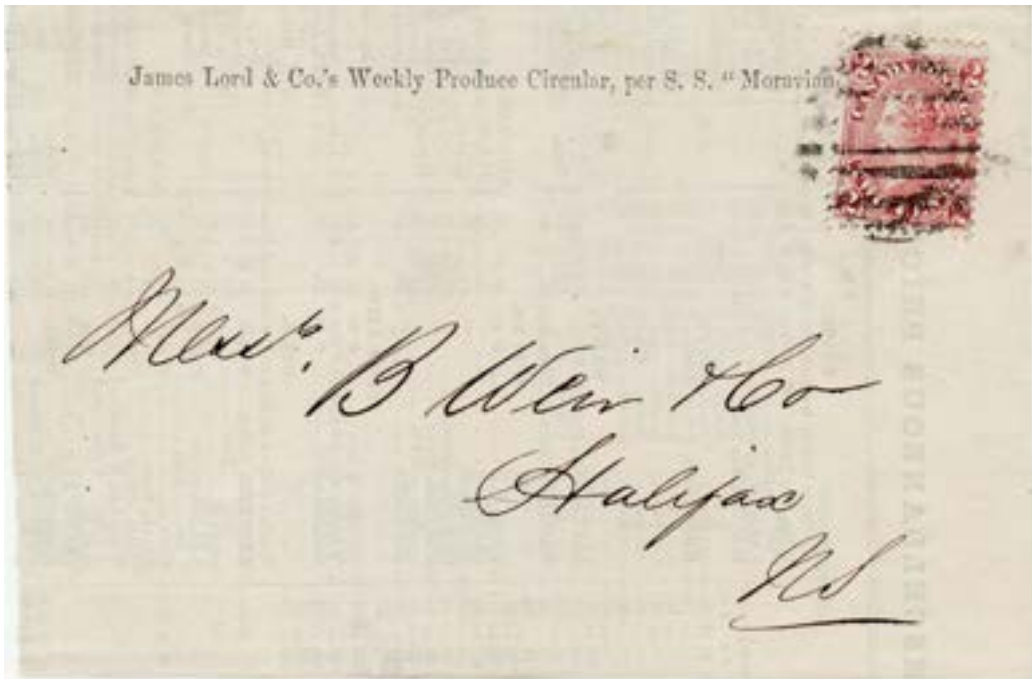 James Lord & Co.'s Weekly Produce Circular, per S. S. "Moravian,
2 2
Messrs. B Weir & Co
Halifax
NS